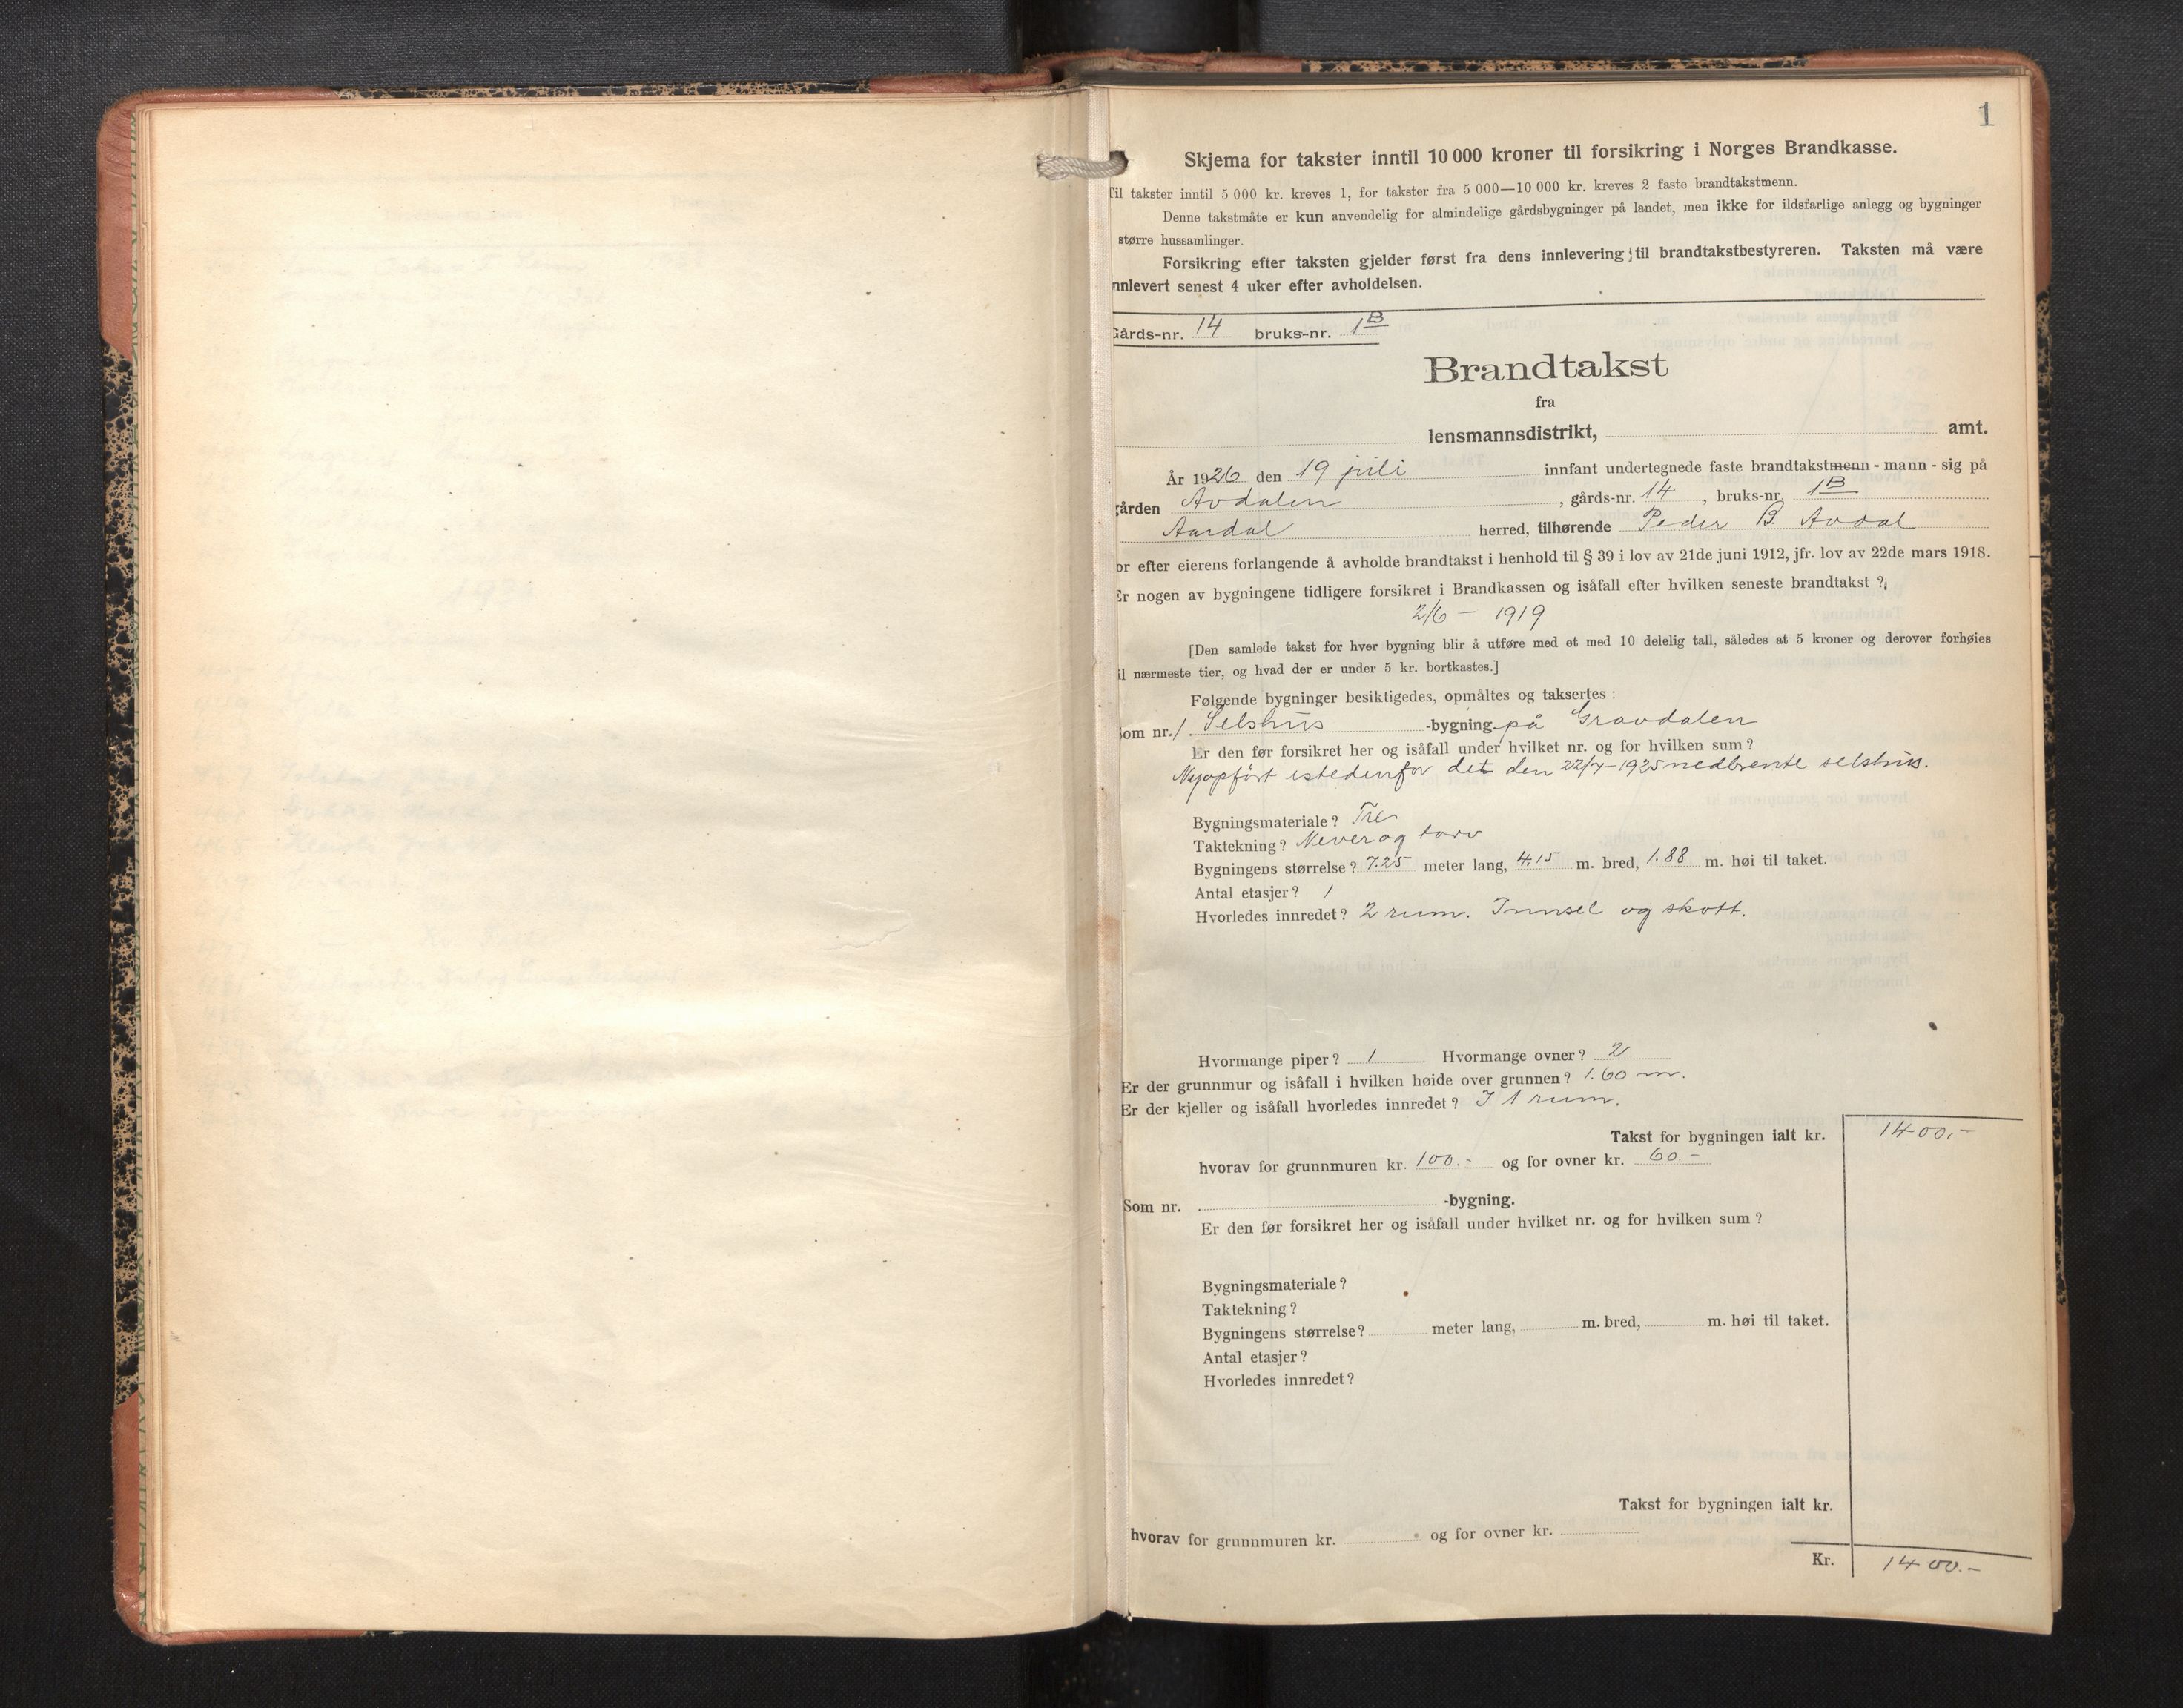 1
Skjema for takster inntil 10 000 kroner til forsikring i Norges Brandkasse.
Til takster inntil 5 000 kr. kreves 1, for takster fra 5 000—10 000 kr. kreves 2 faste brandtakstmenn.
Denne takstmåte er kun anvendelig for almindelige gårdsbygninger på landet, men ikke for ildsfarlige anlegg og bygninger
større hussamlinger.
Forsikring efter taksten gjelder først fra dens innlevering til brandtakstbestyreren. Taksten må være
nnlevert senest 4 uker efter avholdelsen.
Gårds-nr. 14 bruks-nr. 1B
Brandtakst
fra
lensmannsdistrikt, amt.
År 1926 den 19 juli innfant undertegnede faste brandtakstmenn - mann - sig på
gården Avdalen, gårds-nr. 14, bruks-nr. 1B
Aardal herred, tilhørende Peder B. Avdal
or efter eierens forlangende å avholde brandtakst i henhold til § 39 i lov av 21de juni 1912, jfr. lov av 22de mars 1918.
Er nogen av bygningene tidligere forsikret i Brandkassen og isåfall efter hvilken seneste brandtakst ?
2/6 - 1919
[Den samlede takst for hver bygning blir å utføre med et med 10 delelig tall, således at 5 kroner og derover forhøies
il nærmeste tier, og hvad der er under 5 kr. bortkastes.]
Følgende bygninger besiktigedes, opmåltes og taksertes :
Som nr. 1. Selshus -bygning på Gravdalen
Er den før forsikret her og isåfall under hvilket nr. og for hvilken sum ?
Nyopført istedenfor det den 22/7-1925 nedbrente selshus.
Bygningsmateriale ? Tre
Taktekning ? Never og torv
Bygningens størrelse ? 7.25 meter lang, 4.15 m. bred, 1.88 m. høi til taket.
Antal etasjer ? 1
Hvorledes innredet ? 2 rum. Innsel og skott.
Hvormange piper ? 1 Hvormange ovner ? 2
Er der grunnmur og isåfall i hvilken høide over grunnen ? 1.60 m.
Er der kjeller og isåfall hvorledes innredet ? I 1 rum.
Takst for bygningen ialt kr. 1400.-
hvorav for grunnmuren kr. 100.- og for ovner kr. 60.-
Som nr. -bygning.
Er den før forsikret her og isåfall under hvilket nr. og for hvilken sum ?
Bygningsmateriale ?
Taktekning ?
Bygningens størrelse ? meter lang, m. bred, m. høi til taket.
Antal etasjer ?
Hvorledes innredet ?
Takst for bygningen ialt kr.
hvorav for grunnmuren kr. og for ovner kr.
Kr. 1400.-